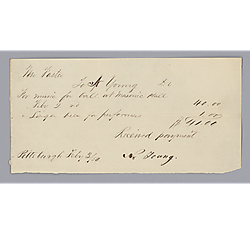 Wm Foster
To A Young Dr
For music for ball at Masonic Hall
Feby 2 40.00
for performers 1.00
$ 41.00
Received payment
Pittsburgh Feby A Young.